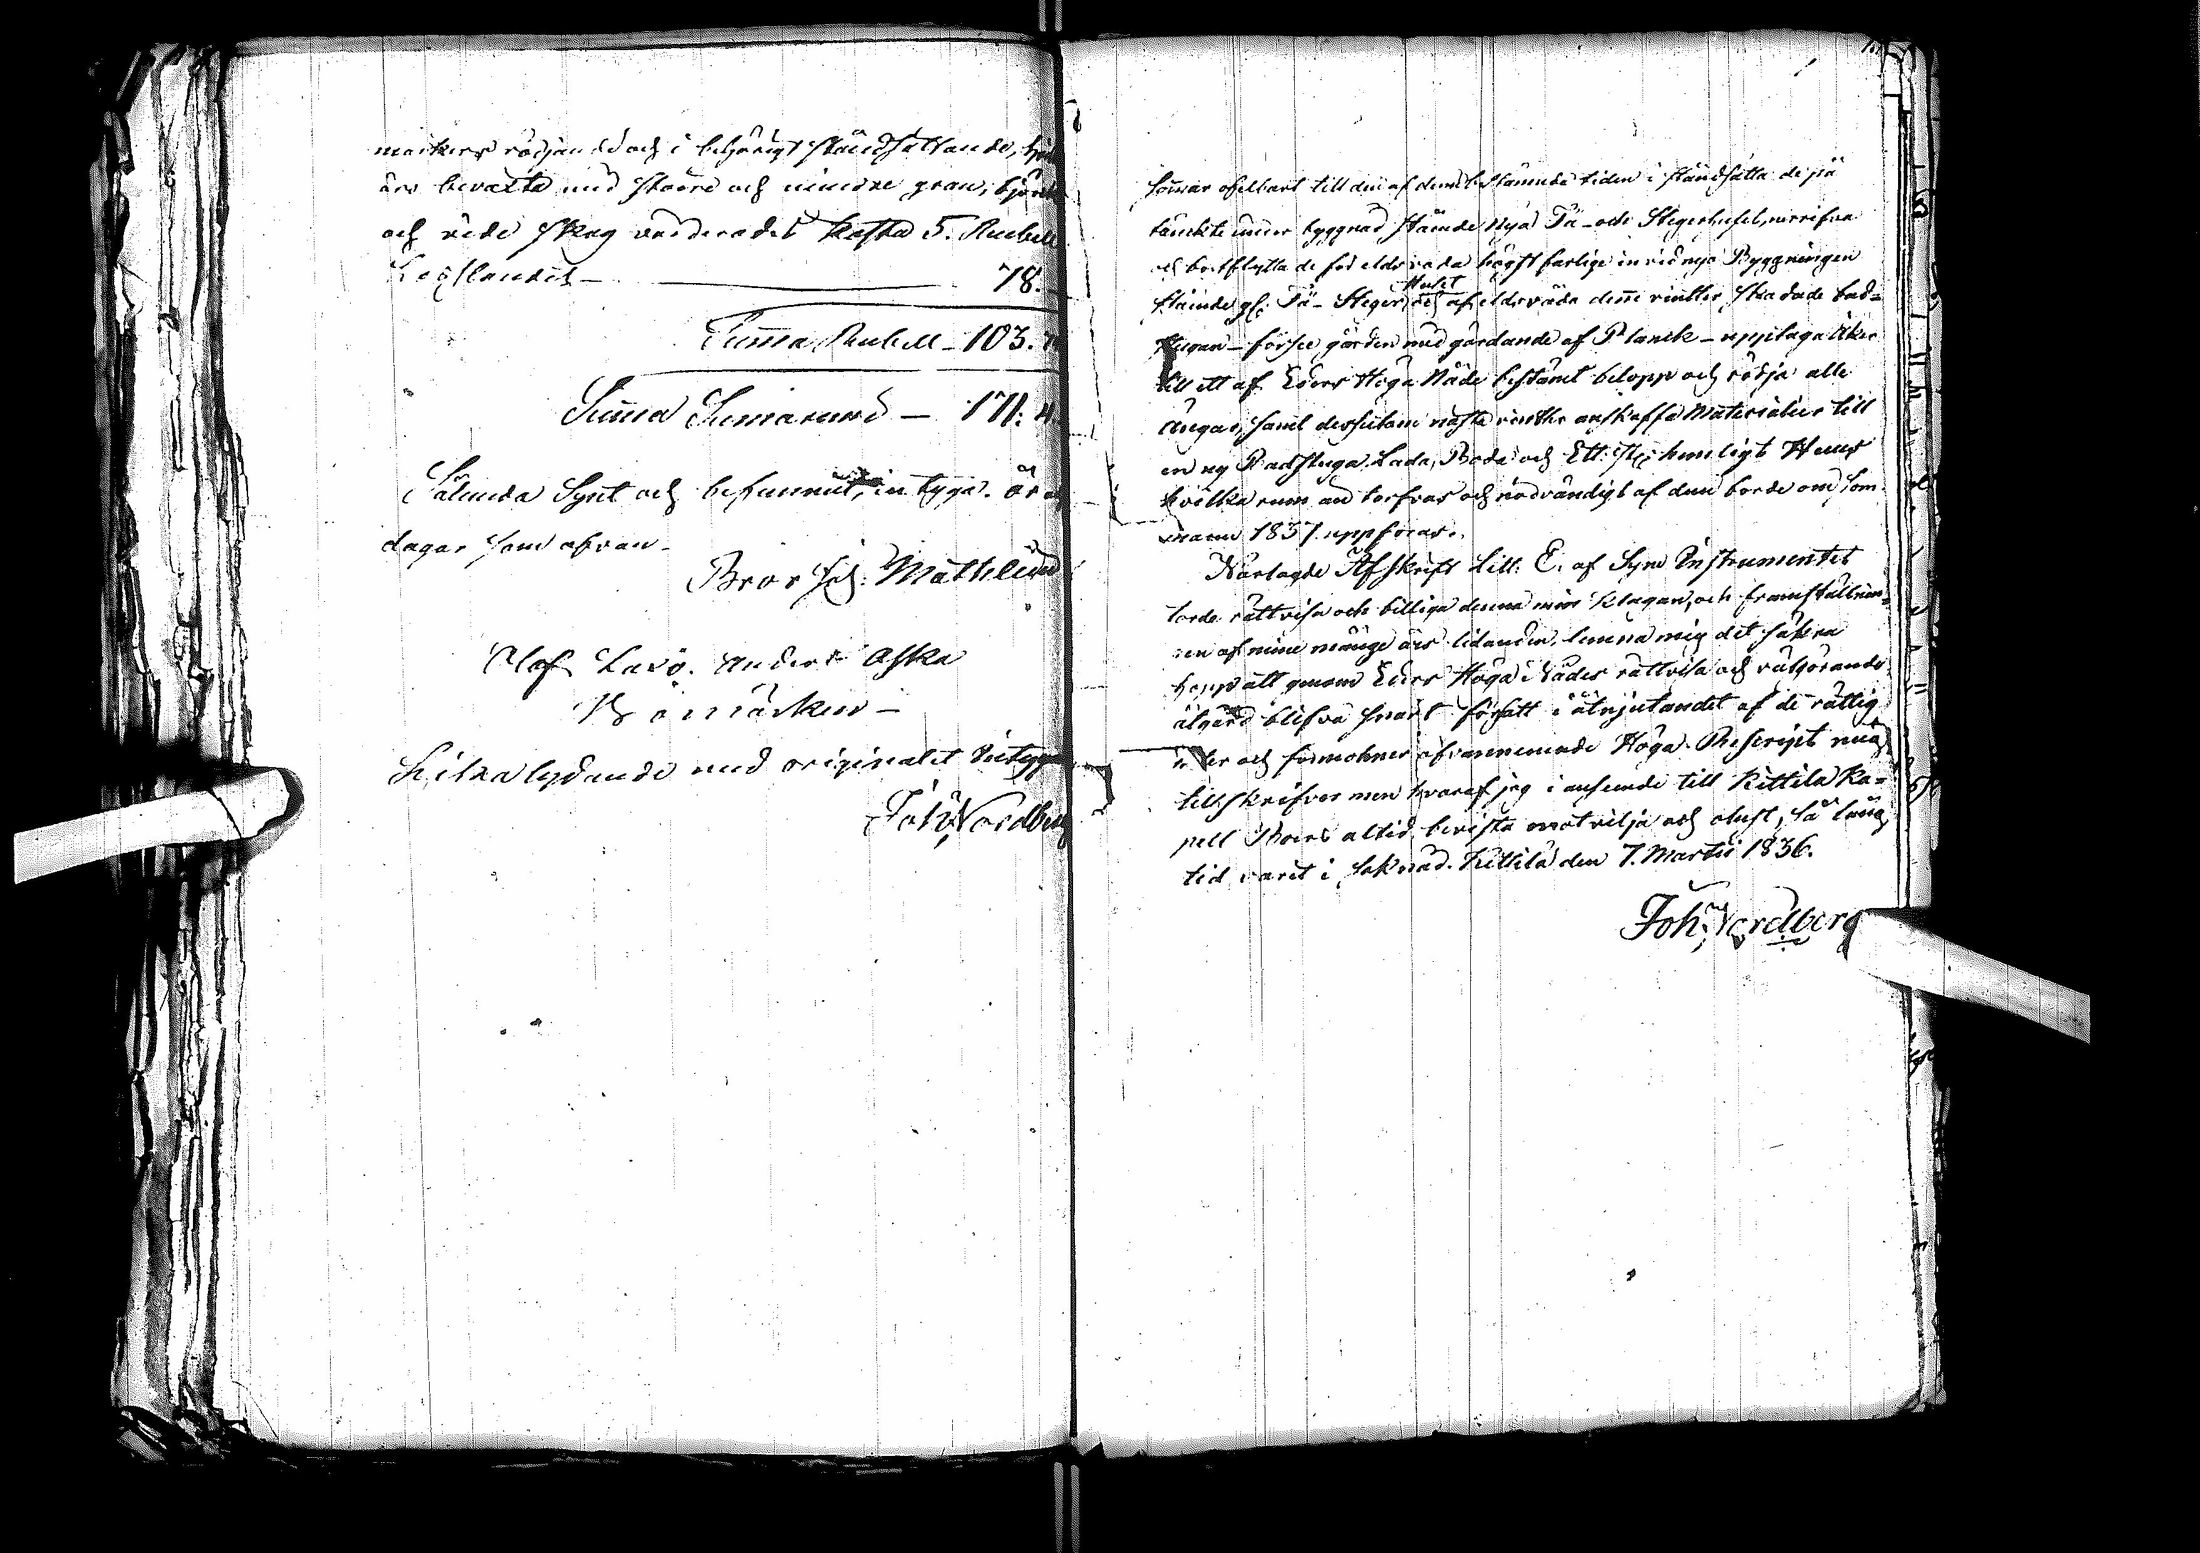 markers rödjande och i behörigt ståndsättande,
äro bevaxta med större och mindre gran, björk
och vide skog värderades kosta 5. Rubel
Kapplandet — 78.
Summa Rubel — 103.
Summa Summarum — 171.
Sålunda Synt och befunnit, intyga. år o
dagar som ofvan.
Bror Joh: Mathlein
Olof Lars. Anders Aska
Bomärken —
Lika lydande med originalet intyga
Joh: Nordberg
somar ofelbart till den af dem bestämde tiden i ståndsätta de på
tänckte under byggnad stående nya Fä- och Stegerhuset, nerrifva
och bortflytta de för eldsvåda högst farlige invid nya Byggningen
stående gl. Fä- Steger Huset och af eldsvåda denne vintter skadade bad-
stugan — förse gården med gärdande af Planck — upptaga åker
till ett af Eders Höga Nåde bestämt belopp och rödja alla
Ängar, samt dessutom nästa vintter anskaffa Materialier till
en ny Badstuga. Lada, Boda och Ett st: hemligt Huus
hvilka rum än torfvas och nödvändigt af dem borde om som-
maren 1837. uppföras.
Närlagde Afskrift Litt: E. af Syne Instrumentet
torde rättvisa och billiga denna min klagan, och framställnin-
gen af mine månge års lidanden, lemna mig det säkra
hopp att genom Eders Höga Nådes rättvisa och rådgörande
åtgärd blifva snart försatt i åtnjutandet af de rättig
heter och förmohner ofvannemnde Höga Rescript mig
tillskrifver men hvaraf jag i anseende till Kittilä Ka-
pell Boers altid bevista motvilja och olust, så lång
tid varit i saknad. Kittilä den 7. Martii 1836.
Joh: Nordberg